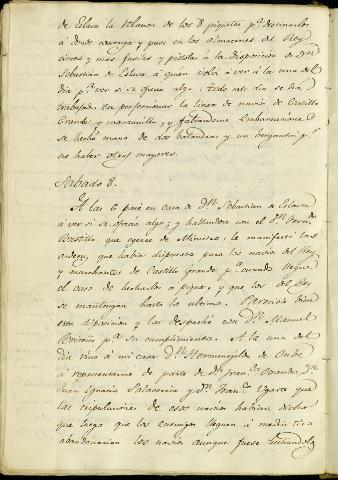 de Eslava la Manan de los 8 piquetes p.ª destinarlos
á donde convenga y puse en los almacenes del Rey
cientos y mas fusiles y pistolas á la disposicion de Dn
Sebastian de Eslava á quien volví á ver á la una del
dia p.ª ver si se ofrecia algo; todo este dia se ha
trabajado en perfeccionar la linea de navios de Castillo
Grande, y manzanillo, y faltandome Embarcaciones
se hechó mano de dos balandras y un bergantin p.r
no haber otras mayores.
Sabado 8.
A las 6 pasé en casa de Dn Sebastian de Eslava
á ver si se ofrecia algo; y hallandose con el Dn
Bustillo que egerce de Ministro, le manifesté las
ordenes que habia dispuesto para los navios del Rey
y marchantes de Castillo Grande p.ª cuando llegue
el caso de hecharlos á pique, y que los del Rey
se mantengan hasta lo ultimo. Pareciole bien
esta disposicion y las despaché con Dn Manuel
Briceño p.ª su cumplimiento. A la una del
dia vino á mi casa Dn Hermenegildo de
á representarme de parte de Dn Fran.co Ovando, Dn
Juan Ignacio Salaverria y Dn Fran.co Ugarte que
las tripulaciones de esos navios habian dicho
que luego que los enemigos lleguen á medio tiro
abandonarian los navios aunque fuese hechandola